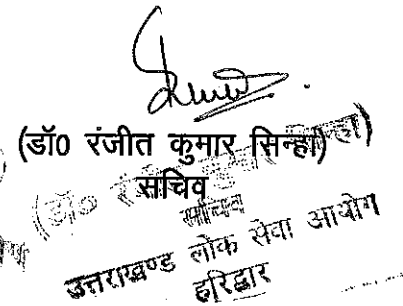 (डॉ0 रंजीत कुमार सिन्हा)
सचिव
सचिव
उत्तराखण्ड लोक सेवा आयोग
हरिद्वार